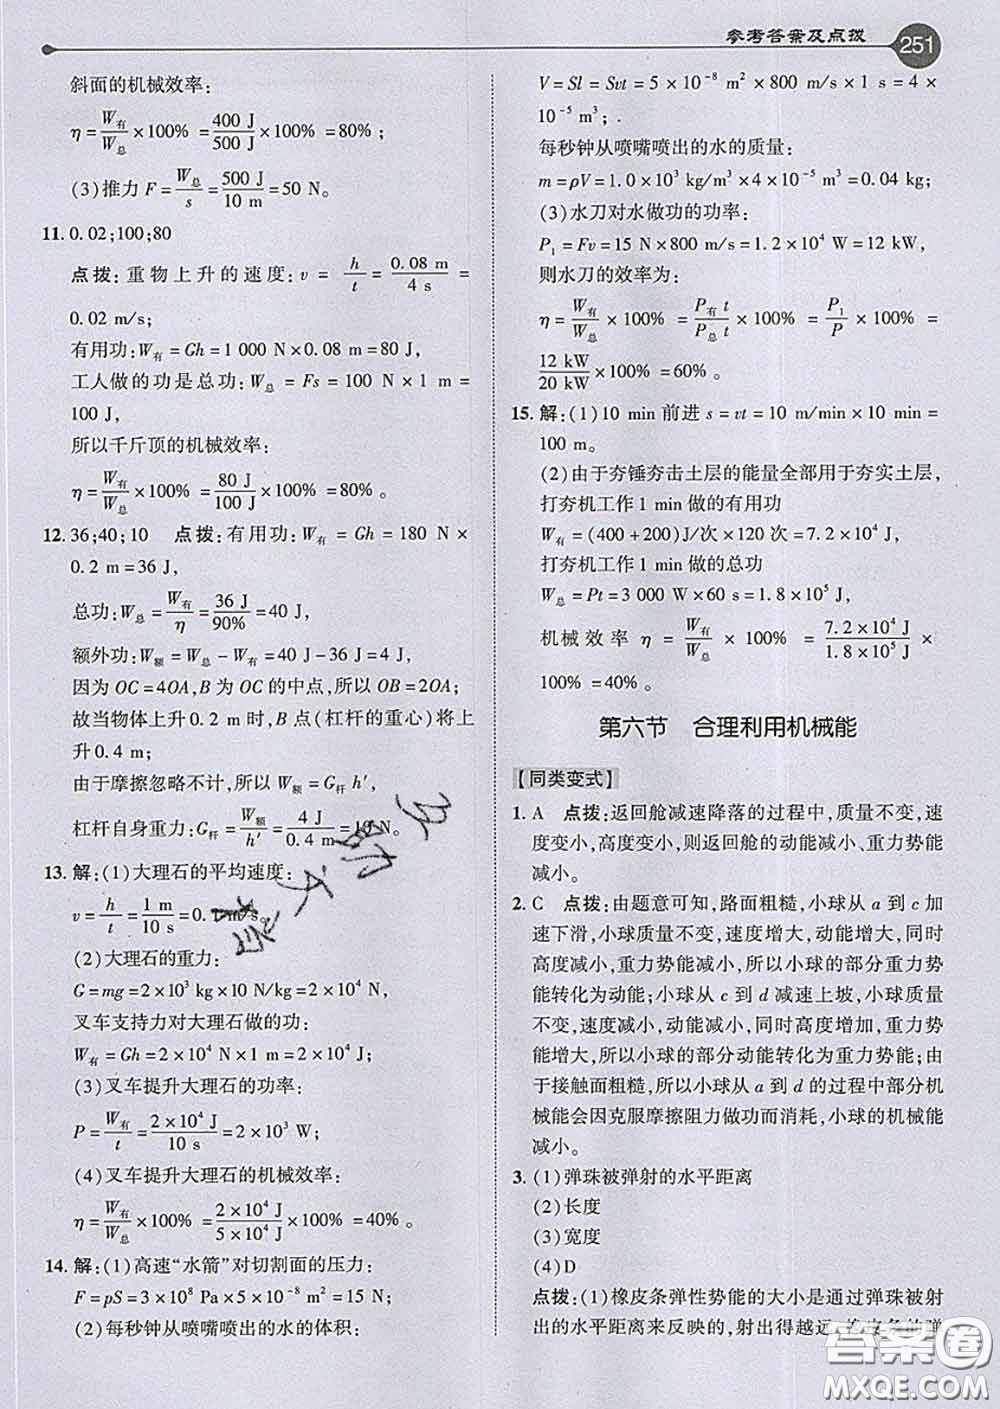 参考答案及点拨 251
斜面的机械效率:
η = W有/W总 × 100% = 400 J/500 J × 100% = 80%;
(3)推力 F = W总/s = 500 J/10 m = 50 N。
11. 0.02;100;80
点拨:重物上升的速度: v = h/t = 0.08 m/4 s =
0.02 m/s;
有用功:W有 = Gh = 1 000 N × 0.08 m = 80 J,
工人做的功是总功:W总 = Fs = 100 N × 1 m =
100 J,
所以千斤顶的机械效率:
η = W有/W总 × 100% = 80 J/100 J × 100% = 80%。
12. 36;40;10 点拨:有用功:W有 = Gh = 180 N ×
0.2 m = 36 J,
总功:W总 = W有/η = 36 J/90% = 40 J,
额外功:W额 = W总 − W有 = 40 J − 36 J = 4 J,
因为 OC = 4OA,B 为 OC 的中点,所以 OB = 2OA;
故当物体上升 0.2 m 时,B 点(杠杆的重心)将上
升 0.4 m;
由于摩擦忽略不计,所以 W额 = G杆 h′,
杠杆自身重力:G杆 = W额/h′ = 4 J/0.4 m = 10 N。
13. 解:(1)大理石的平均速度:
v = h/t = 1 m/10 s = 0.1 m/s。
(2)大理石的重力:
G = mg = 2 × 10³ kg × 10 N/kg = 2 × 10⁴ N,
叉车支持力对大理石做的功:
W有 = Gh = 2 × 10⁴ N × 1 m = 2 × 10⁴ J;
(3)叉车提升大理石的功率:
P = W有/t = 2 × 10⁴ J/10 s = 2 × 10³ W;
(4)叉车提升大理石的机械效率:
η = W有/W总 × 100% = 2 × 10⁴ J/5 × 10⁴ J × 100% = 40%。
14. 解:(1)高速“水箭”对切割面的压力:
F = pS = 3 × 10⁸ Pa × 5 × 10⁻⁸ m² = 15 N;
(2)每秒钟从喷嘴喷出的水的体积:
V = Sl = Svt = 5 × 10⁻⁸ m² × 800 m/s × 1 s = 4 ×
10⁻⁵ m³;
每秒钟从喷嘴喷出的水的质量:
m = ρV = 1.0 × 10³ kg/m³ × 4 × 10⁻⁵ m³ = 0.04 kg;
(3)水刀对水做功的功率:
P₁ = Fv = 15 N × 800 m/s = 1.2 × 10⁴ W = 12 kW,
则水刀的效率为:
η = W有/W总 × 100% = P有 t/P总 t × 100% = P₁/P × 100% =
12 kW/20 kW × 100% = 60%。
15. 解:(1)10 min 前进 s = vt = 10 m/min × 10 min =
100 m。
(2)由于夯锤夯击土层的能量全部用于夯实土层,
打夯机工作 1 min 做的有用功
W有 = (400 + 200)J/次 × 120 次 = 7.2 × 10⁴ J,
打夯机工作 1 min 做的总功
W总 = Pt = 3 000 W × 60 s = 1.8 × 10⁵ J,
机械效率 η = W有/W总 × 100% = 7.2 × 10⁴ J/1.8 × 10⁵ J ×
100% = 40%。
第六节 合理利用机械能
【同类变式】
1. A 点拨:返回舱减速降落的过程中,质量不变,速
度变小,高度变小,则返回舱的动能减小、重力势能
减小。
2. C 点拨:由题意可知,路面粗糙,小球从 a 到 c 加
速下滑,小球质量不变,速度增大,动能增大,同时
高度减小,重力势能减小,所以小球的部分重力势
能转化为动能;小球从 c 到 d 减速上坡,小球质量
不变,速度减小,动能减小,同时高度增加,重力势
能增大,所以小球的部分动能转化为重力势能;由
于接触面粗糙,所以小球从 a 到 d 的过程中部分机
械能会因克服摩擦阻力做功而消耗,小球的机械能
减小。
3. (1)弹珠被弹射的水平距离
(2)长度
(3)宽度
(4)D
点拨:(1)橡皮条弹性势能的大小是通过弹珠被射
出的水平距离来反映的,射出得越远,橡皮条的弹
答案圈
MXQE.COM